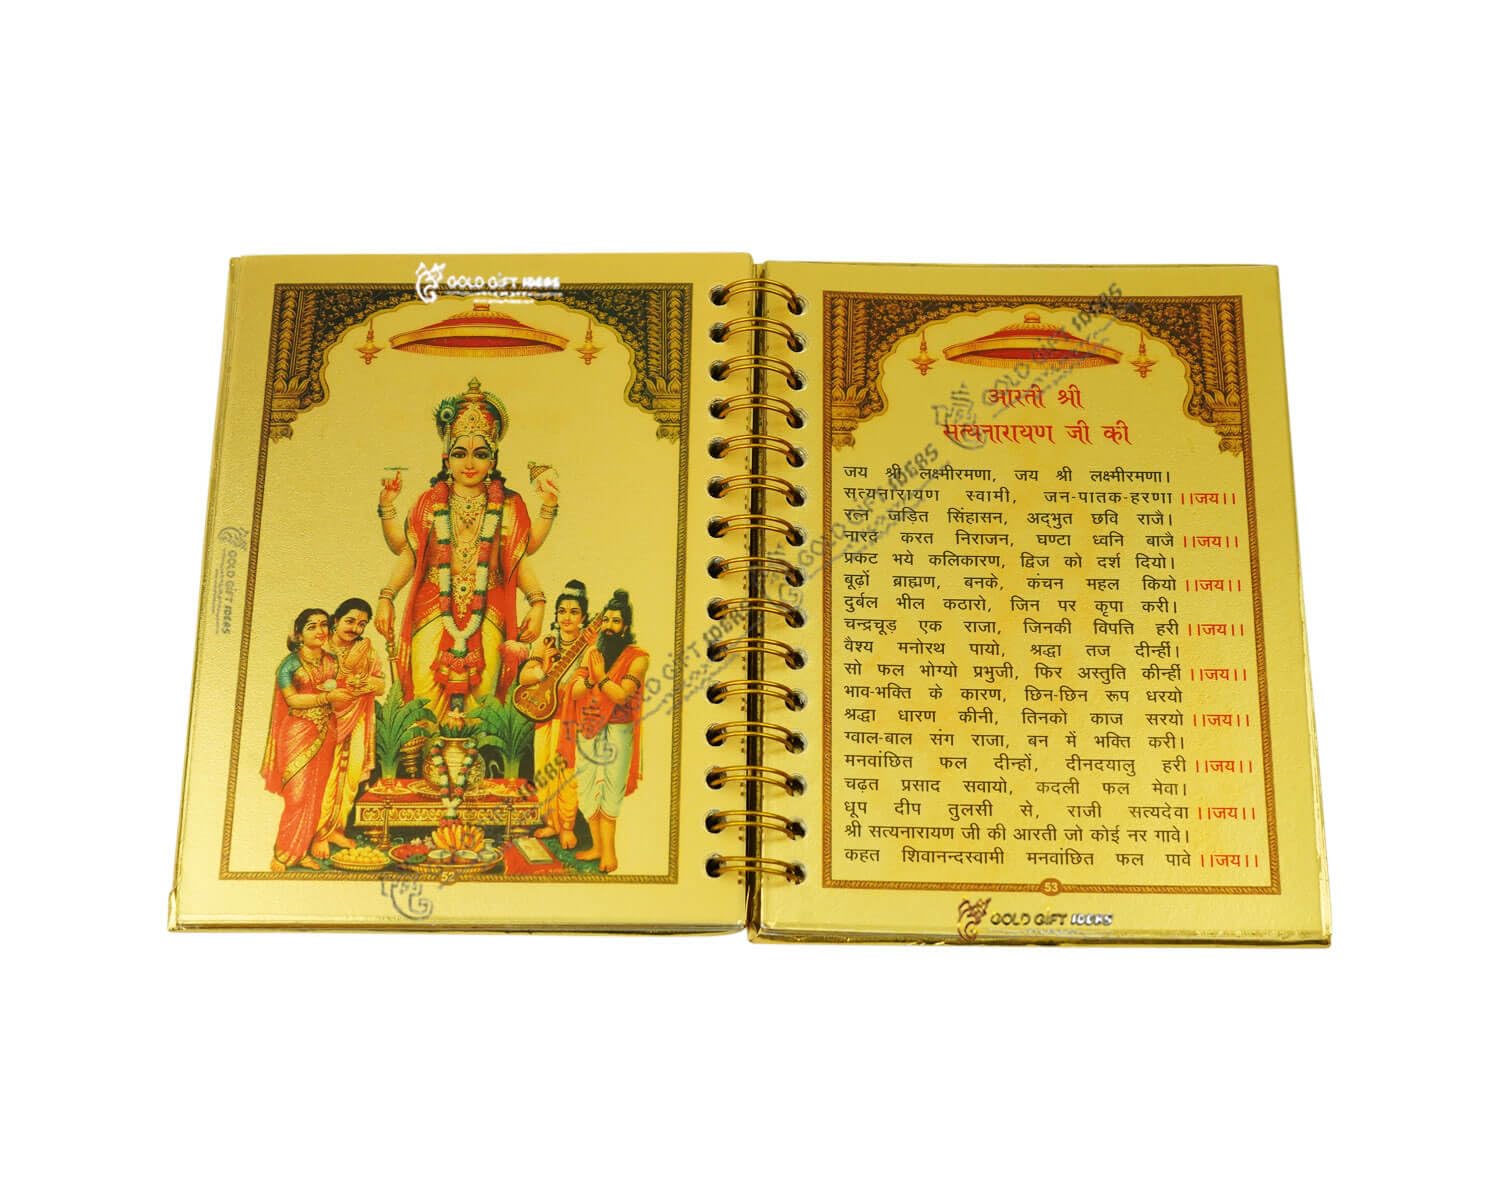 GOLD GIFT IDEAS
GOLD GIFT IDEAS
GOLD GIFT IDEAS
52
आरती श्री
सत्यनारायण जी की
जय श्री लक्ष्मीरमणा, जय श्री लक्ष्मीरमणा।
सत्यनारायण स्वामी, जन-पातक-हरणा ।।जय।।
रत्न जड़ित सिंहासन, अद्भुत छवि राजै।
नारद करत निराजन, घण्टा ध्वनि बाजै ।।जय।।
प्रकट भये कलिकारण, द्विज को दर्श दियो।
बूढ़ों ब्राह्मण, बनके, कंचन महल कियो ।।जय।।
दुर्बल भील कठारो, जिन पर कृपा करी।
चन्द्रचूड़ एक राजा, जिनकी विपत्ति हरी ।।जय।।
वैश्य मनोरथ पायो, श्रद्धा तज दीन्हीं।
सो फल भोग्यो प्रभुजी, फिर अस्तुति कीन्हीं ।।जय।।
भाव-भक्ति के कारण, छिन-छिन रूप धरयो
श्रद्धा धारण कीनी, तिनको काज सरयो ।।जय।।
ग्वाल-बाल संग राजा, बन में भक्ति करी।
मनवांछित फल दीन्हों, दीनदयालु हरी ।।जय।।
चढ़त प्रसाद सवायो, कदली फल मेवा।
धूप दीप तुलसी से, राजी सत्यदेवा ।।जय।।
श्री सत्यनारायण जी की आरती जो कोई नर गावे।
कहत शिवानन्दस्वामी मनवांछित फल पावे ।।जय।।
53
GOLD GIFT IDEAS
GOLD GIFT IDEAS
GOLD GIFT IDEAS